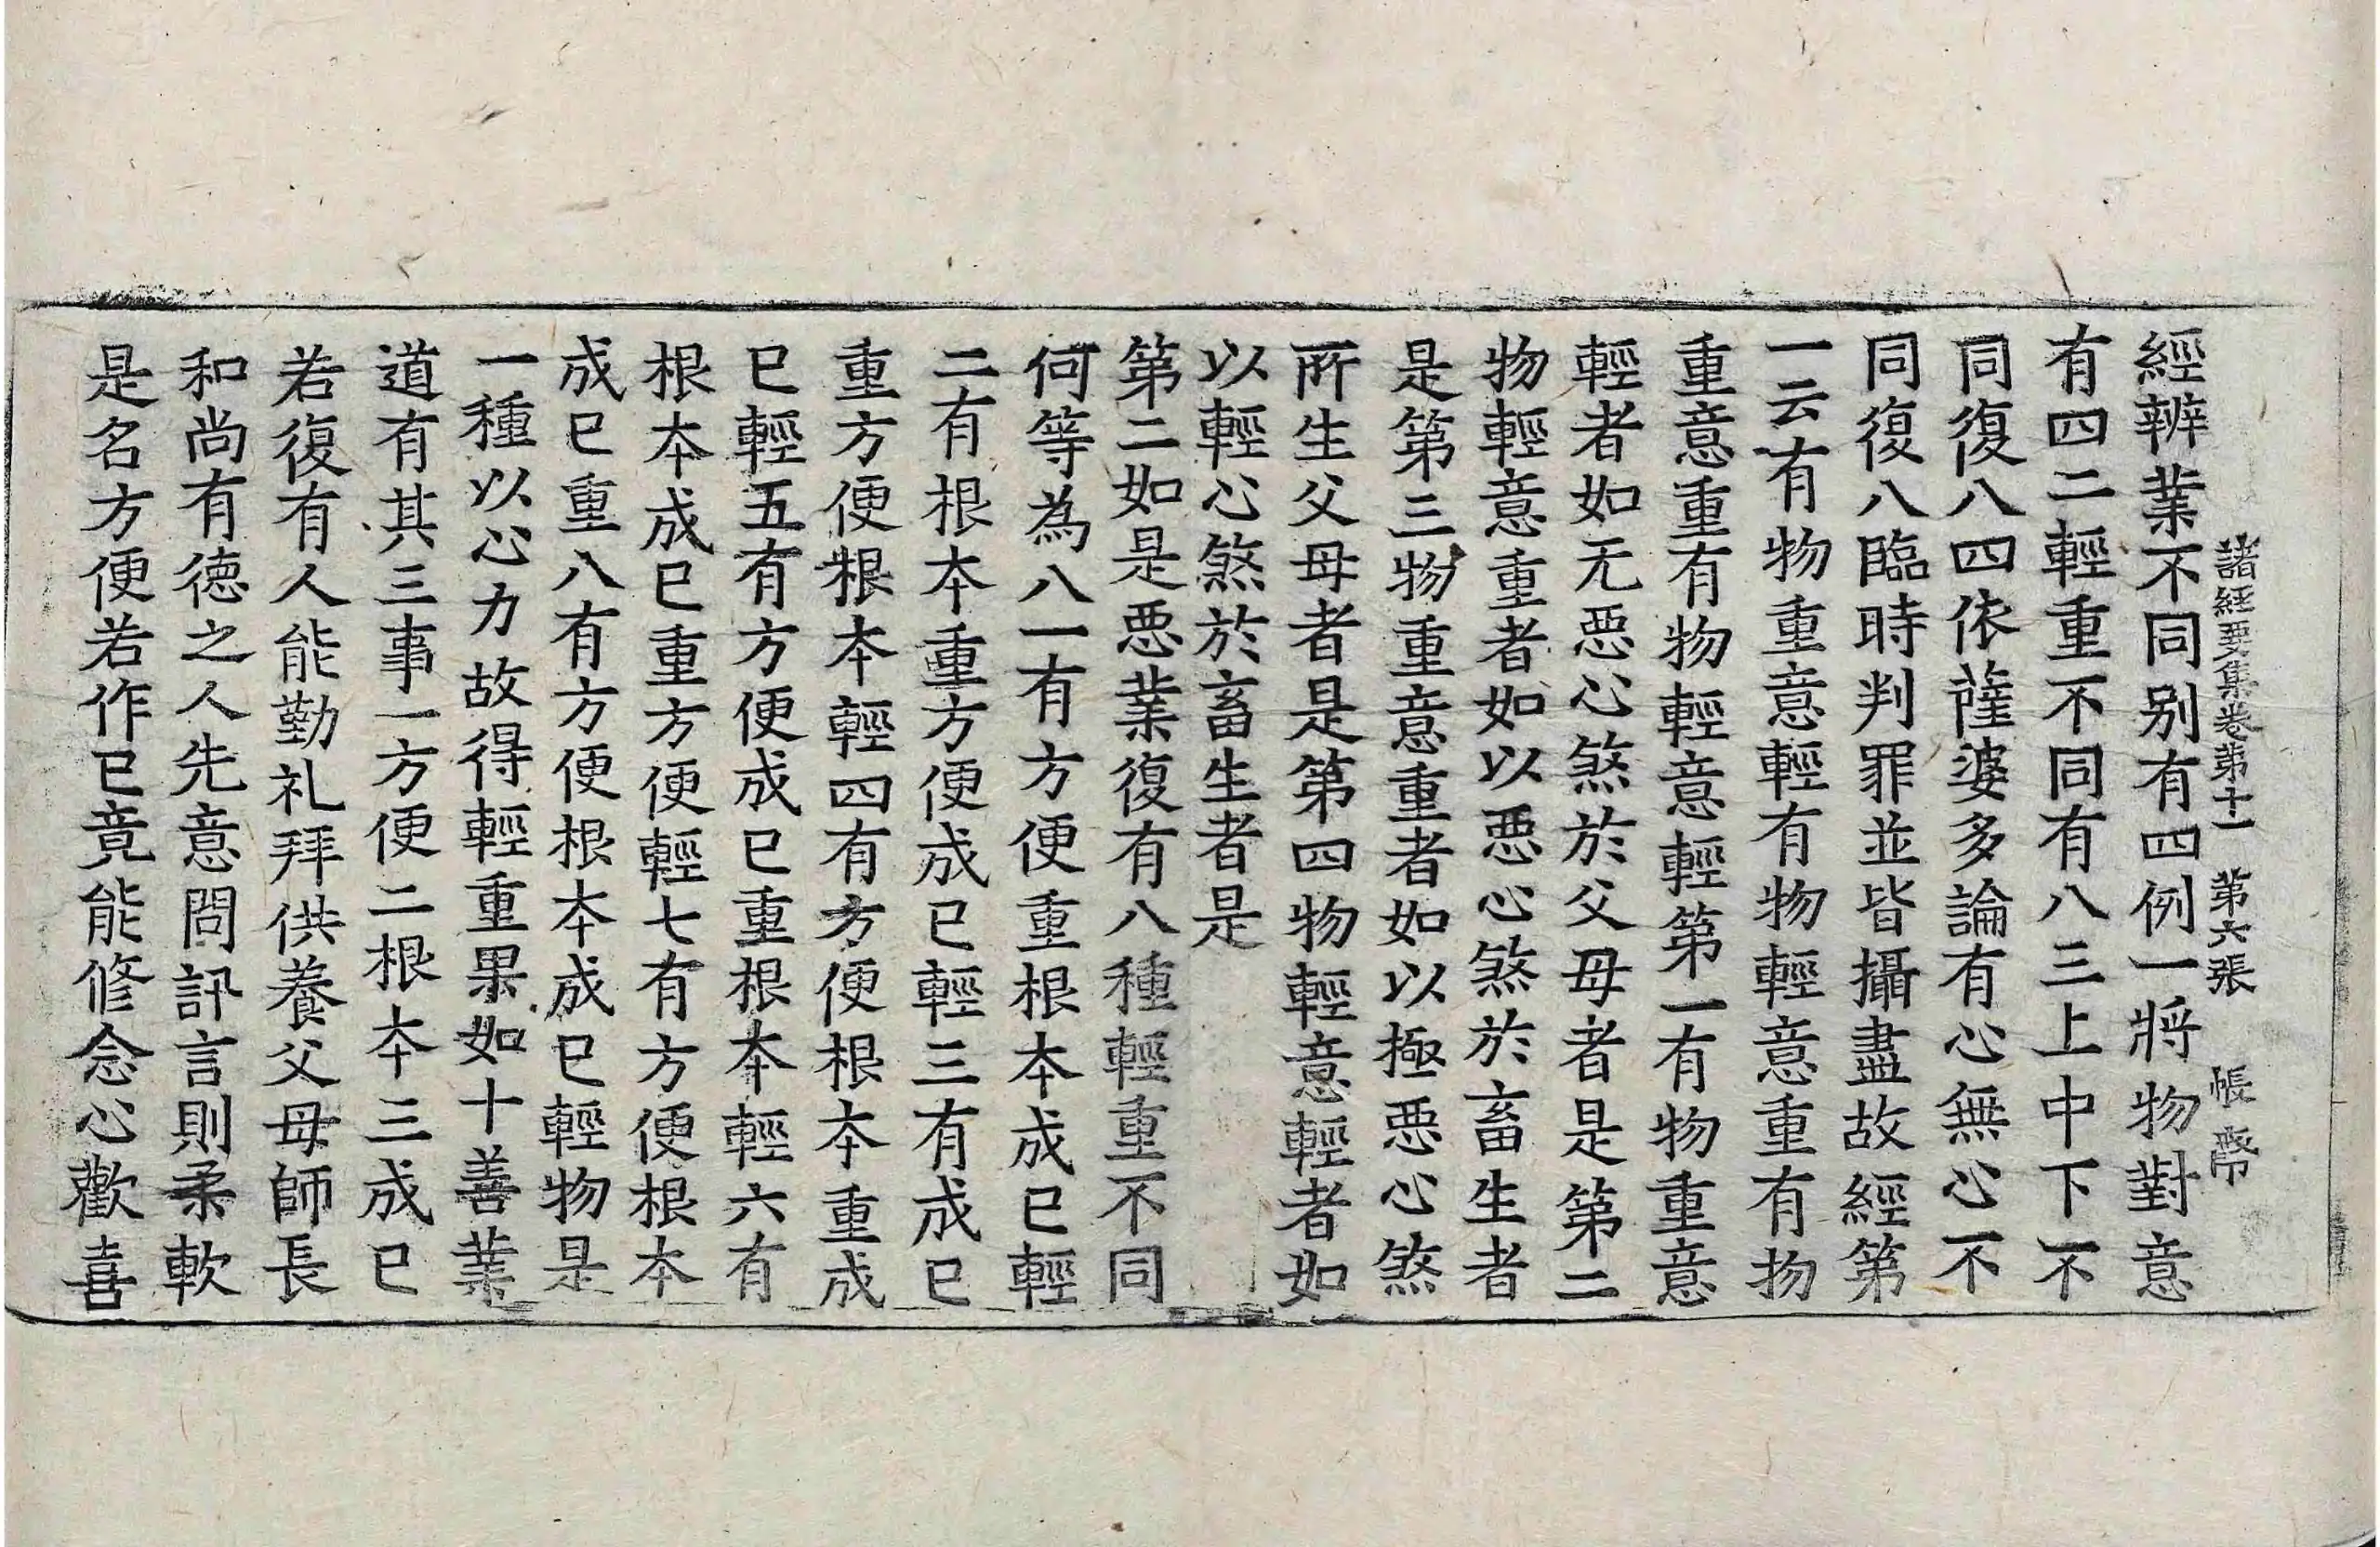 諸經要集卷第十一 第六張 帳
經辨業不同別有四例一將物對意
有四二輕重不同有八三上中下不
同復八四依薩婆多論有心無心不
同復八臨時判罪並皆攝盡故經第
一云有物重意輕有物輕意重有物
重意重有物輕意輕第一有物重意
輕者如无惡心煞於父母者是第二
物輕意重者如以惡心煞於畜生者
是第三物重意重者如以極惡心煞
所生父母者是第四物輕意輕者如
以輕心煞於畜生者是
第二如是惡業復有八種輕重不同
何等為八一有方便重根本成已輕
二有根本重方便成已輕三有成已
重方便根本輕四有方便根本重成
已輕五有方便成已重根本輕六有
根本成已重方便輕七有方便根本
成已重八有方便根本成已輕物是
一種以心力故得輕重果如十善業
道有其三事一方便二根本三成已
若復有人能勤礼拜供養父母師長
和尚有德之人先意問訊言則柔軟
是名方便若作已竟能修念心歡喜